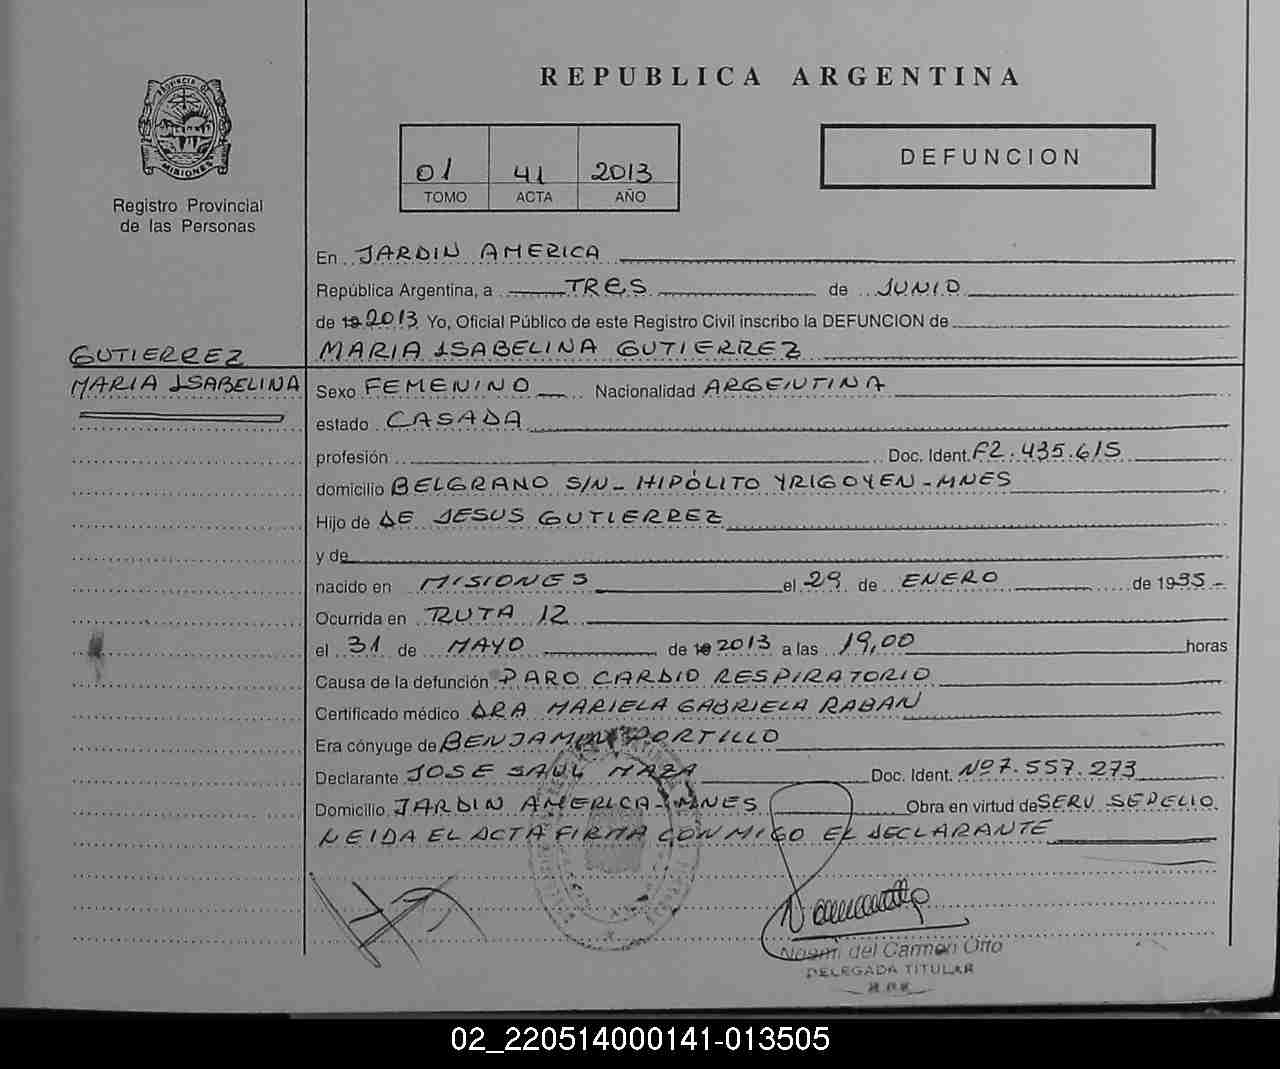 REPUBLICA ARGENTINA
PROVINCIA DE
MISIONES
Registro Provincial
de las Personas
01 41 2013
TOMO ACTA AÑO
DEFUNCION
En JARDIN AMERICA
República Argentina, a TRES de JUNIO
de 19 2013 Yo, Oficial Público de este Registro Civil inscribo la DEFUNCION de
GUTIERREZ
MARIA ISABELINA
MARIA ISABELINA GUTIERREZ
Sexo FEMENINO Nacionalidad ARGENTINA
estado CASADA
profesión Doc. Ident. F2.435.615
domicilio BELGRANO S/N - HIPÓLITO YRIGOYEN - MNES
Hijo de DE JESUS GUTIERREZ
y de
nacido en MISIONES el 29 de ENERO de 1935 -
Ocurrida en RUTA 12
el 31 de MAYO de 19 2013 a las 19,00 horas
Causa de la defunción PARO CARDIO RESPIRATORIO
Certificado médico DRA MARIELA GABRIELA RABAN
Era cónyuge de BENJAMIN PORTILLO
Declarante JOSE SAUL MAZA Doc. Ident. Nº 7.557.273
Domicilio JARDIN AMERICA - MNES Obra en virtud de SERV SEPELIO
LEIDA EL ACTA FIRMA CONMIGO EL DECLARANTE
Noemi del Carmen Otto
DELEGADA TITULAR
02_220514000141-013505